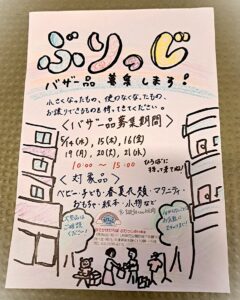 ぶりっじ
バザー品 募集します!
小さくなったもの、使わなくなったもの、
お譲りできるものを持ってきてください。
<バザー品募集期間>
5/14(水), 15(木), 16(金)
19(月), 20(火), 21(水)
10:00 ~ 15:00
ひろばに
持って来てね!
<対象品>
ベビー・子ども・春夏衣類・マタニティ・
おもちゃ・絵本・小物など
大型品は
ご相談
ください!